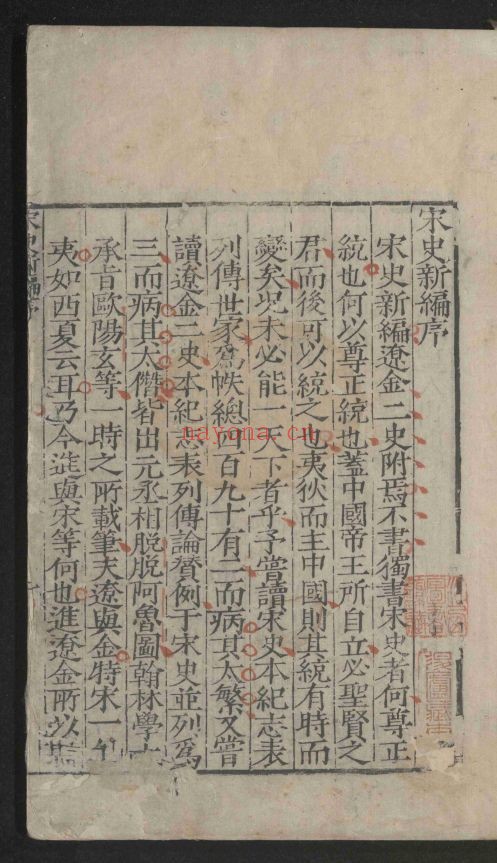 宋史新編序
宋史新編遼金二史附焉不書獨書宋史者何尊正
統也何以尊正統也蓋中國帝王所自立必聖賢之
君而後可以統之也夷狄而主中國則其統有時而
變矣况未必能一天下者乎予嘗讀宋史本紀志表
列傳世家爲帙總四百九十有二而病其太繁又嘗
讀遼金二史本紀志表列傳論贊例于宋史並列爲
三而病其太僭皆出元丞相脫脫阿魯圖翰林學士
承旨歐陽玄等一時之所載筆夫遼與金特宋一
夷如西夏云耳乃今進與宋等何也進遼金所以
宋史新編序
nayona.cn